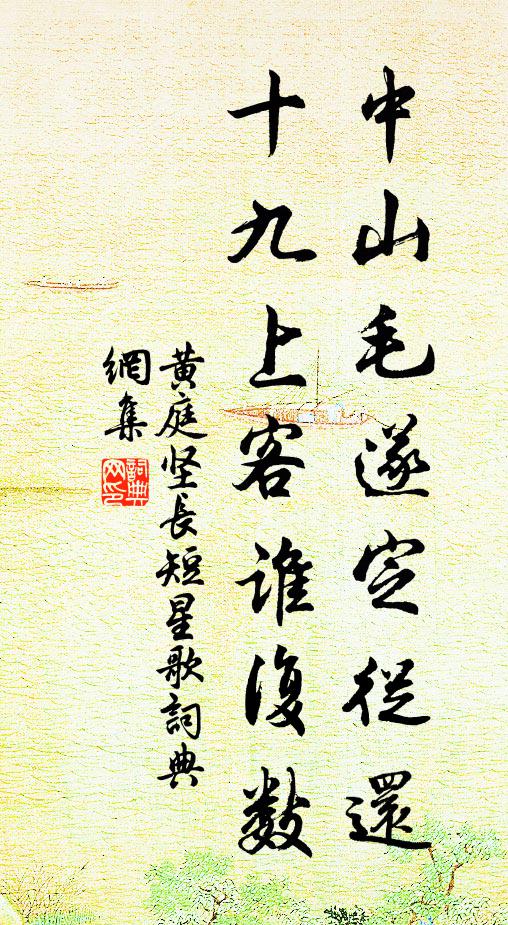 中山毛遂定從還
十九上客誰復數
黄庭坚長短星歌詞典
網集
詞典網印